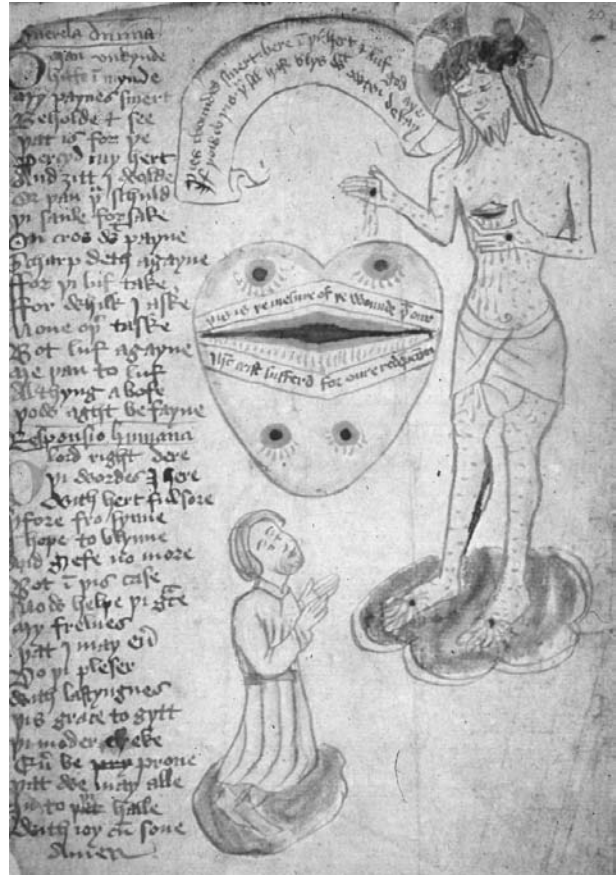 20
Querela diuina
O man vnkynde
hafe ī mynde
My paynes smert
Beholde & see
þat is for þe
Percyd my hert
And ȝitt I wolde
Or þan þu schuld
þi saule forsake
On cros wt payne
Scharp deth agayne
ffor þi luf take
ffor whilk I aske
None oþr taske
Bot luf agayne
Me þan to luf
Al thyng a bofe
þow aght be fayne
Responsio humana
O lord right dere
þi wordes I here
With hert ful sore
þfore fro synne
I hope to blynne
And grefe no more
Bot ī þis case
Now helpe þi gce
My frelnes
þat I may eu
Do þi pleser
With lastyngnes
þis grace to gytt
þi moder eke
Eu be prone
þat we may alle
In to þi halle
With ioy cū sone
Amen
þies woundes smert bere ī þi hert & luf god aye
If þow do þis þu sal haf blys wt owten delay
þis is þe mesure of þe wounde þt our
Ihc crist sufferd for oure redempcion